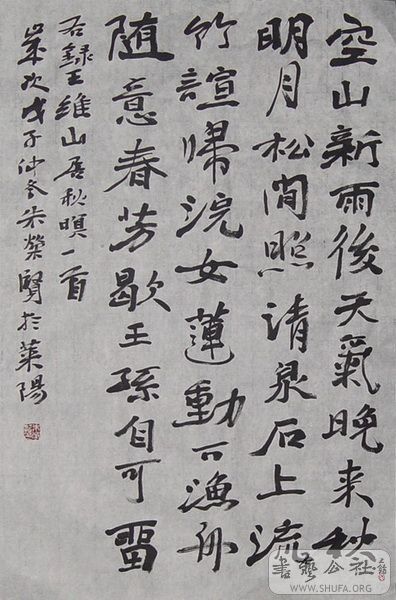 空山新雨後天氣晚来秋
明月松間照清泉石上流
竹諠歸浣女蓮動下漁舟
随意春芳歇王孫自可留
右録王維山居秋暝一首
歲次戊子仲冬朱榮賢於萊陽
書藝公社
WWW.SHUFA.ORG